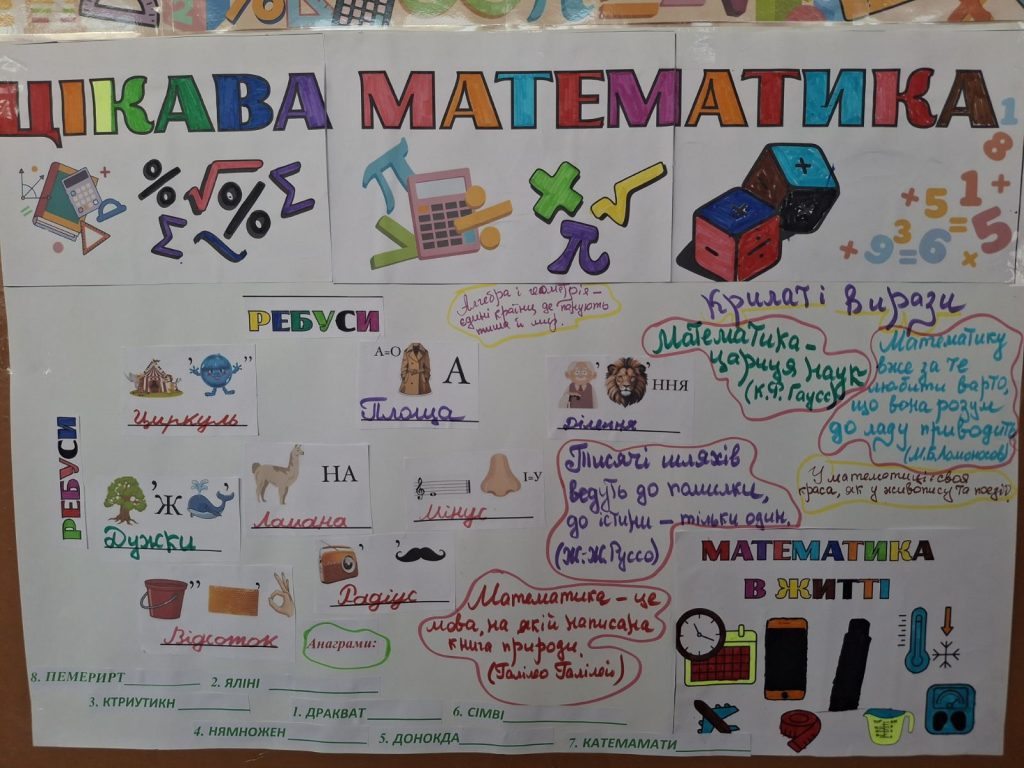 ЦІКАВА МАТЕМАТИКА
РЕБУСИ
РЕБУСИ
Алгебра і геометрія –
єдині країни, де панують
тиша й мир.
Крилаті вирази
Математика –
цариця наук
(К.Ф. Гаусс)
Математику
вже за те
любити варто,
що вона розум
до ладу приводить
(М.В. Ломоносов)
,,
Циркуль
А=О
А
Площа
, ННЯ
Ділення
, Ж ,
Дужки
НА
Ламана
І=У
Мінус
Тисячі шляхів
ведуть до помилки,
до істини – тільки один.
(Ж-Ж Руссо)
У математиці є своя
краса, як у живописі та поезії
,
Радіус
,, ,
Відсоток
Анаграми:
Математика – це
мова, на якій написана
книга природи.
(Галілео Галілей)
МАТЕМАТИКА
В ЖИТТІ
8. ПЕМЕРИРТ
2. ЯЛІНІ
3. КТРИУТИКН
1. ДРАКВАТ
6. СІМВІ
4. НЯМНОЖЕН
5. ДОНОКДА
7. КАТЕМАМАТИ